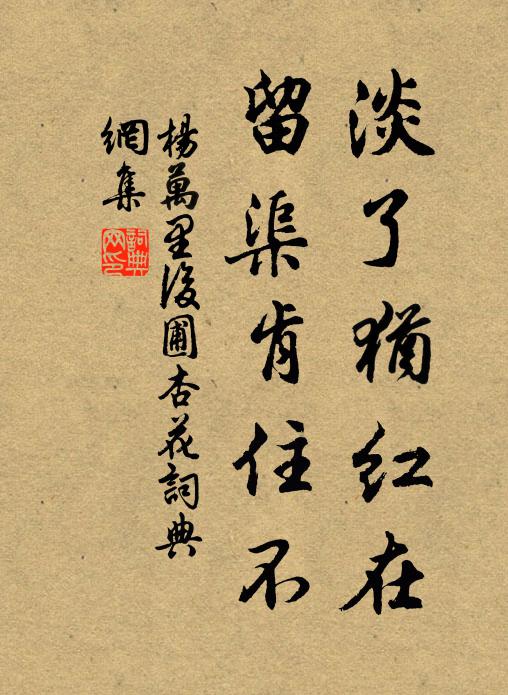 淡了猶紅在
留渠肯住不
楊萬里後圃杏花詞典
網集
詞典
网印